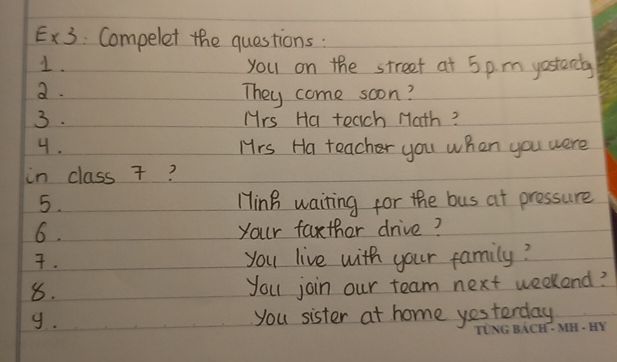 Ex 3: Compelet the questions:
1. you on the street at 5 p.m yesterdy
2. They come soon?
3. Mrs Ha teach Math?
4. Mrs Ha teacher you when you were
in class 7 ?
5. Minh waiting for the bus at pressure
6. your farther drive?
7. you live with your family?
8. you join our team next weekend?
9. you sister at home yesterday
TÙNG BÁCH - MH - HY